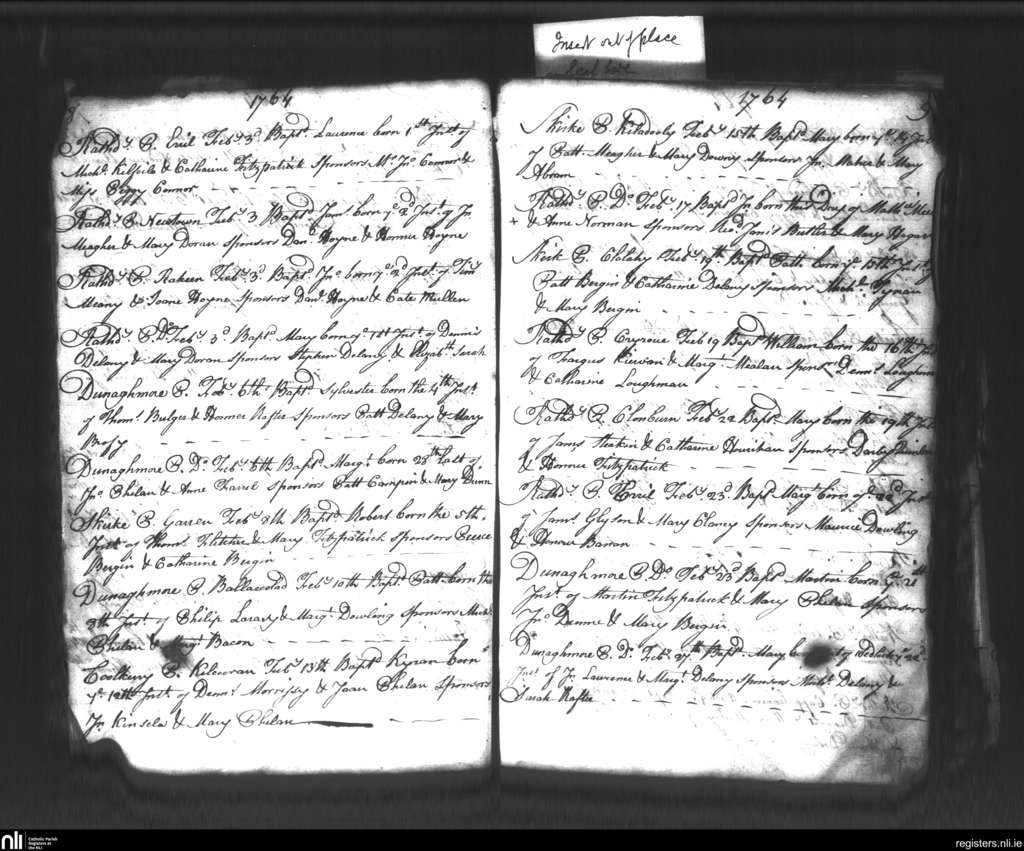 Insert out of place
8
1764
Rathd.y P. Eril Feb.y 3.d Bapt.d Laurence born 1st Inst. of
Mich.l & Catharine Fitzpatrick Sponsors Mr. Jno. Connor &
Miss Peggy Connor
Rathd.y P. Newtown Feb.y 3 Bapt.d Jam.s born y.e 2.d Inst. of Jn.
Meagher & Mary Doran Sponsors Dan.l Hoyne & Honner Hoyne
Rathd.y P. Rakeen Feb.y 3.d Bapt. Jno. born y.e 2.d Inst. of Tim.
Meany & Joane Hoyne Sponsors Dan.l Hoyne & Cate Mullen
Rathd.y P. Do. Feb.y 3.d Bapt.d Mary born y.e 1st Inst. of Dennis
Delany & Mary Doran Sponsors Stephen Delany & Elizabth. Sarah
Dunaghmore P. Feb.y 6th Bapt.d Sylvester born the 4th Inst.
of Thom.s Bulger & Honner Rafter Sponsors Patt Delany & Mary
Brofy
Dunaghmore P. Do. Feb.y 6th Bapt.d Marg.t born 25th last of
Jno. Phelan & Anne Farrel Sponsors Patt & Mary Dunn
Skirke P. Garren Feb.y 8th Bapt.d Robert born the 5th
Inst. of Thom.s Fletcher & Mary Fitzpatrick Sponsors Peirce
Bergin & Catharine Bergin
Dunaghmore P. Ballacolad Feb.y 10th Bapt.d Patt born the
8th Inst. of Philip & Marg.t Dowling Sponsors Mich.l
Phelan & Marg.t Bacon
Coolkerry P. Kilcoran Feb.y 13th Bapt.d Kyran born
y.e 12th Inst. of Denn.s Morrissy & Joan Phelan Sponsors
Jn. Kinsela & Mary Phelan
1764
9
Skirke P. Kiladooly Feb.y 15th Bapt.d Mary born y.e
of Patt. Meagher & Mary Downy Sponsors Jn. Maher & Mary
Abram
Rathd.y P. Do. Feb.y 17 Bapt.d Jn. born the Day of
+ & Anne Norman Sponsors Butler & Mary Hogan
Skirk P. Feb.y 19th Bapt.d Patt born y.e 15th Inst. of
Patt Bergin & Catharine Delany Sponsors Mich.l
& Mary Bergin
Rathd.y P. Feb.y 19 Bapt.d William born the 16th Inst.
of Fargus Kirwan & Marg.t Mealan Sponsrs. Denn.s Loughman
& Catharine Loughman
Rathd.y P. Clonburn Feb.y 22 Bapt.d Mary born the 19th Inst.
of Jam.s & Catharine Hourihan Sponsors Darby
& Honner Fitzpatrick
Rathd.y P. Erril Feb.y 23.d Bapt.d Marg.t born y.e 22.d Inst.
of Jam.s Glyson & Mary Clancy Sponsors Maurice Dowling
& Honour Barron
Dunaghmore P. Do. Feb.y 23.d Bapt.d Martin born y.e 21st
Inst. of Martin Fitzpatrick & Mary Phelan Sponsors
Jno. Dunne & Mary Bergin
Dunaghmore P. Do. Feb.y 27th Bapt.d Mary
Inst. of Jn. Lawrence & Marg.t Delany Sponsors Mich.l Delany &
Sarah Rafter
nli
Catholic Parish
Registers at
the NLI
registers.nli.ie